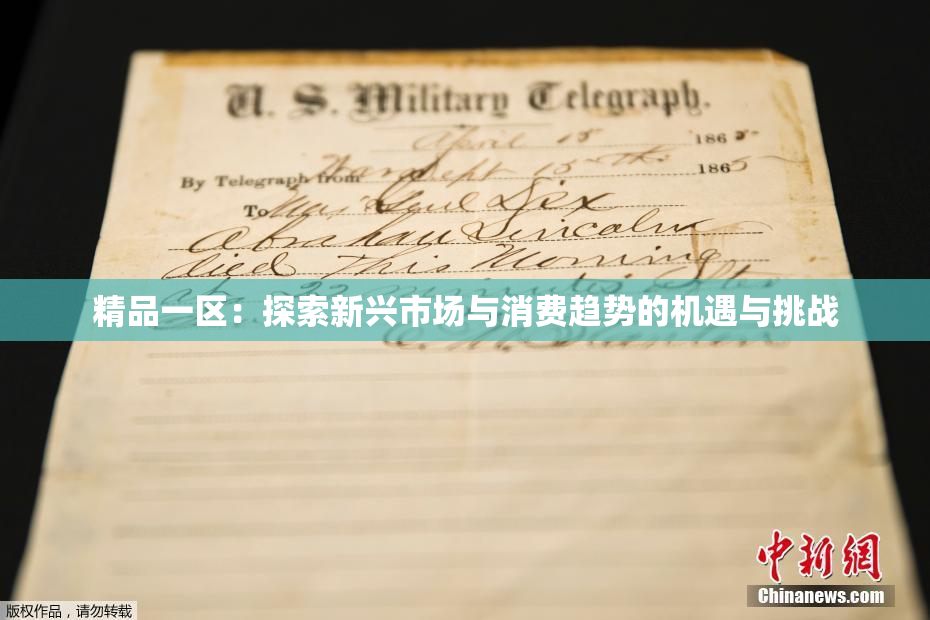 U. S. Military Telegraph.
April 15 1865
By Telegraph from War Dept 15th 1865
To Maj Genl Dix
Abraham Lincoln
died This Morning
at 22 minutes after
精品一区：探索新兴市场与消费趋势的机遇与挑战
E. M. Stanton
中新网
Chinanews.com
版权作品，请勿转载